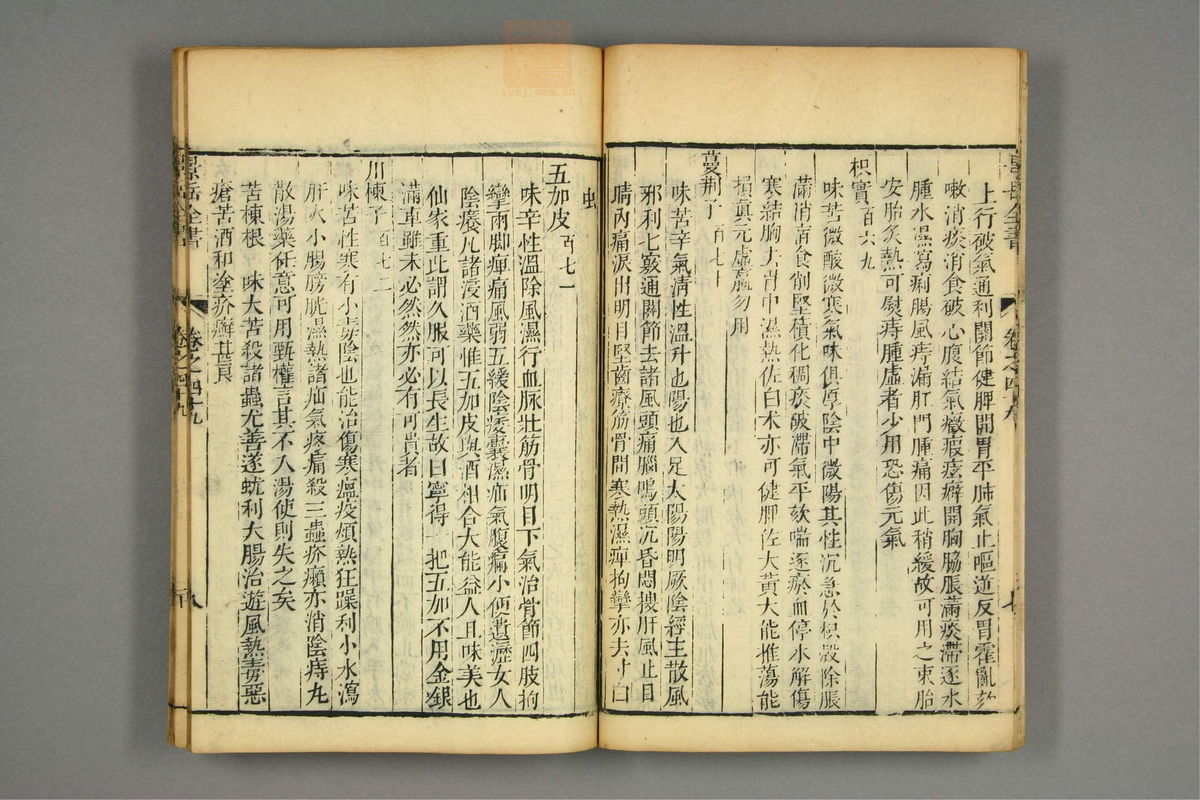 景岳全書 卷之四十九
上行破氣通利關節健脾開胃平肺氣止嘔逆反胃霍亂欬
嗽消痰消食破心腹結氣癥瘕痃癖開胸脇脹滿痰滯逐水
腫水濕瀉痢腸風痔漏肛門腫痛因此稍緩故可用之束胎
安胎炙熱可熨痔腫虛者少用恐傷元氣
枳實百六九
味苦微酸微寒氣味俱厚陰中微陽其性沉急於枳殼除脹
滿消宿食削堅積化稠痰破滯氣平欬喘逐瘀血停水解傷
寒結胸去胃中濕熱佐白术亦可健脾佐大黃大能推蕩能
損真元虛羸勿用
蔓荆子百七十
味苦辛氣清性溫升也陽也入足太陽陽明厥陰經主散風
邪利七竅通關節去諸風頭痛腦鳴頭沉昏悶搜肝風止目
睛內痛淚出明目堅齒療筋骨間寒熱濕痺拘攣亦去寸白
虫
五加皮百七一
味辛性溫除風濕行血脉壯筋骨明目下氣治骨節四肢拘
攣兩脚痺痛風弱五緩陰痿囊濕疝氣腹痛小便遺瀝女人
陰癢凡諸浸酒藥惟五加皮與酒相合大能益人且味美也
仙家重此謂久服可以長生故曰寧得一把五加不用金銀
滿車雖未必然然亦必有可貴者
川楝子百七二
味苦性寒有小毒陰也能治傷寒瘟疫煩熱狂躁利小水瀉
肝火小腸膀胱濕熱諸疝氣疼痛殺三蟲疥癩亦消陰痔丸
散湯藥任意可用甄權言其不入湯使則失之矣
苦楝根 味大苦殺諸蟲尤善逐蚘利大腸治遊風熱毒惡
瘡苦酒和塗疥癬甚良
景岳全書 卷之四十九 八